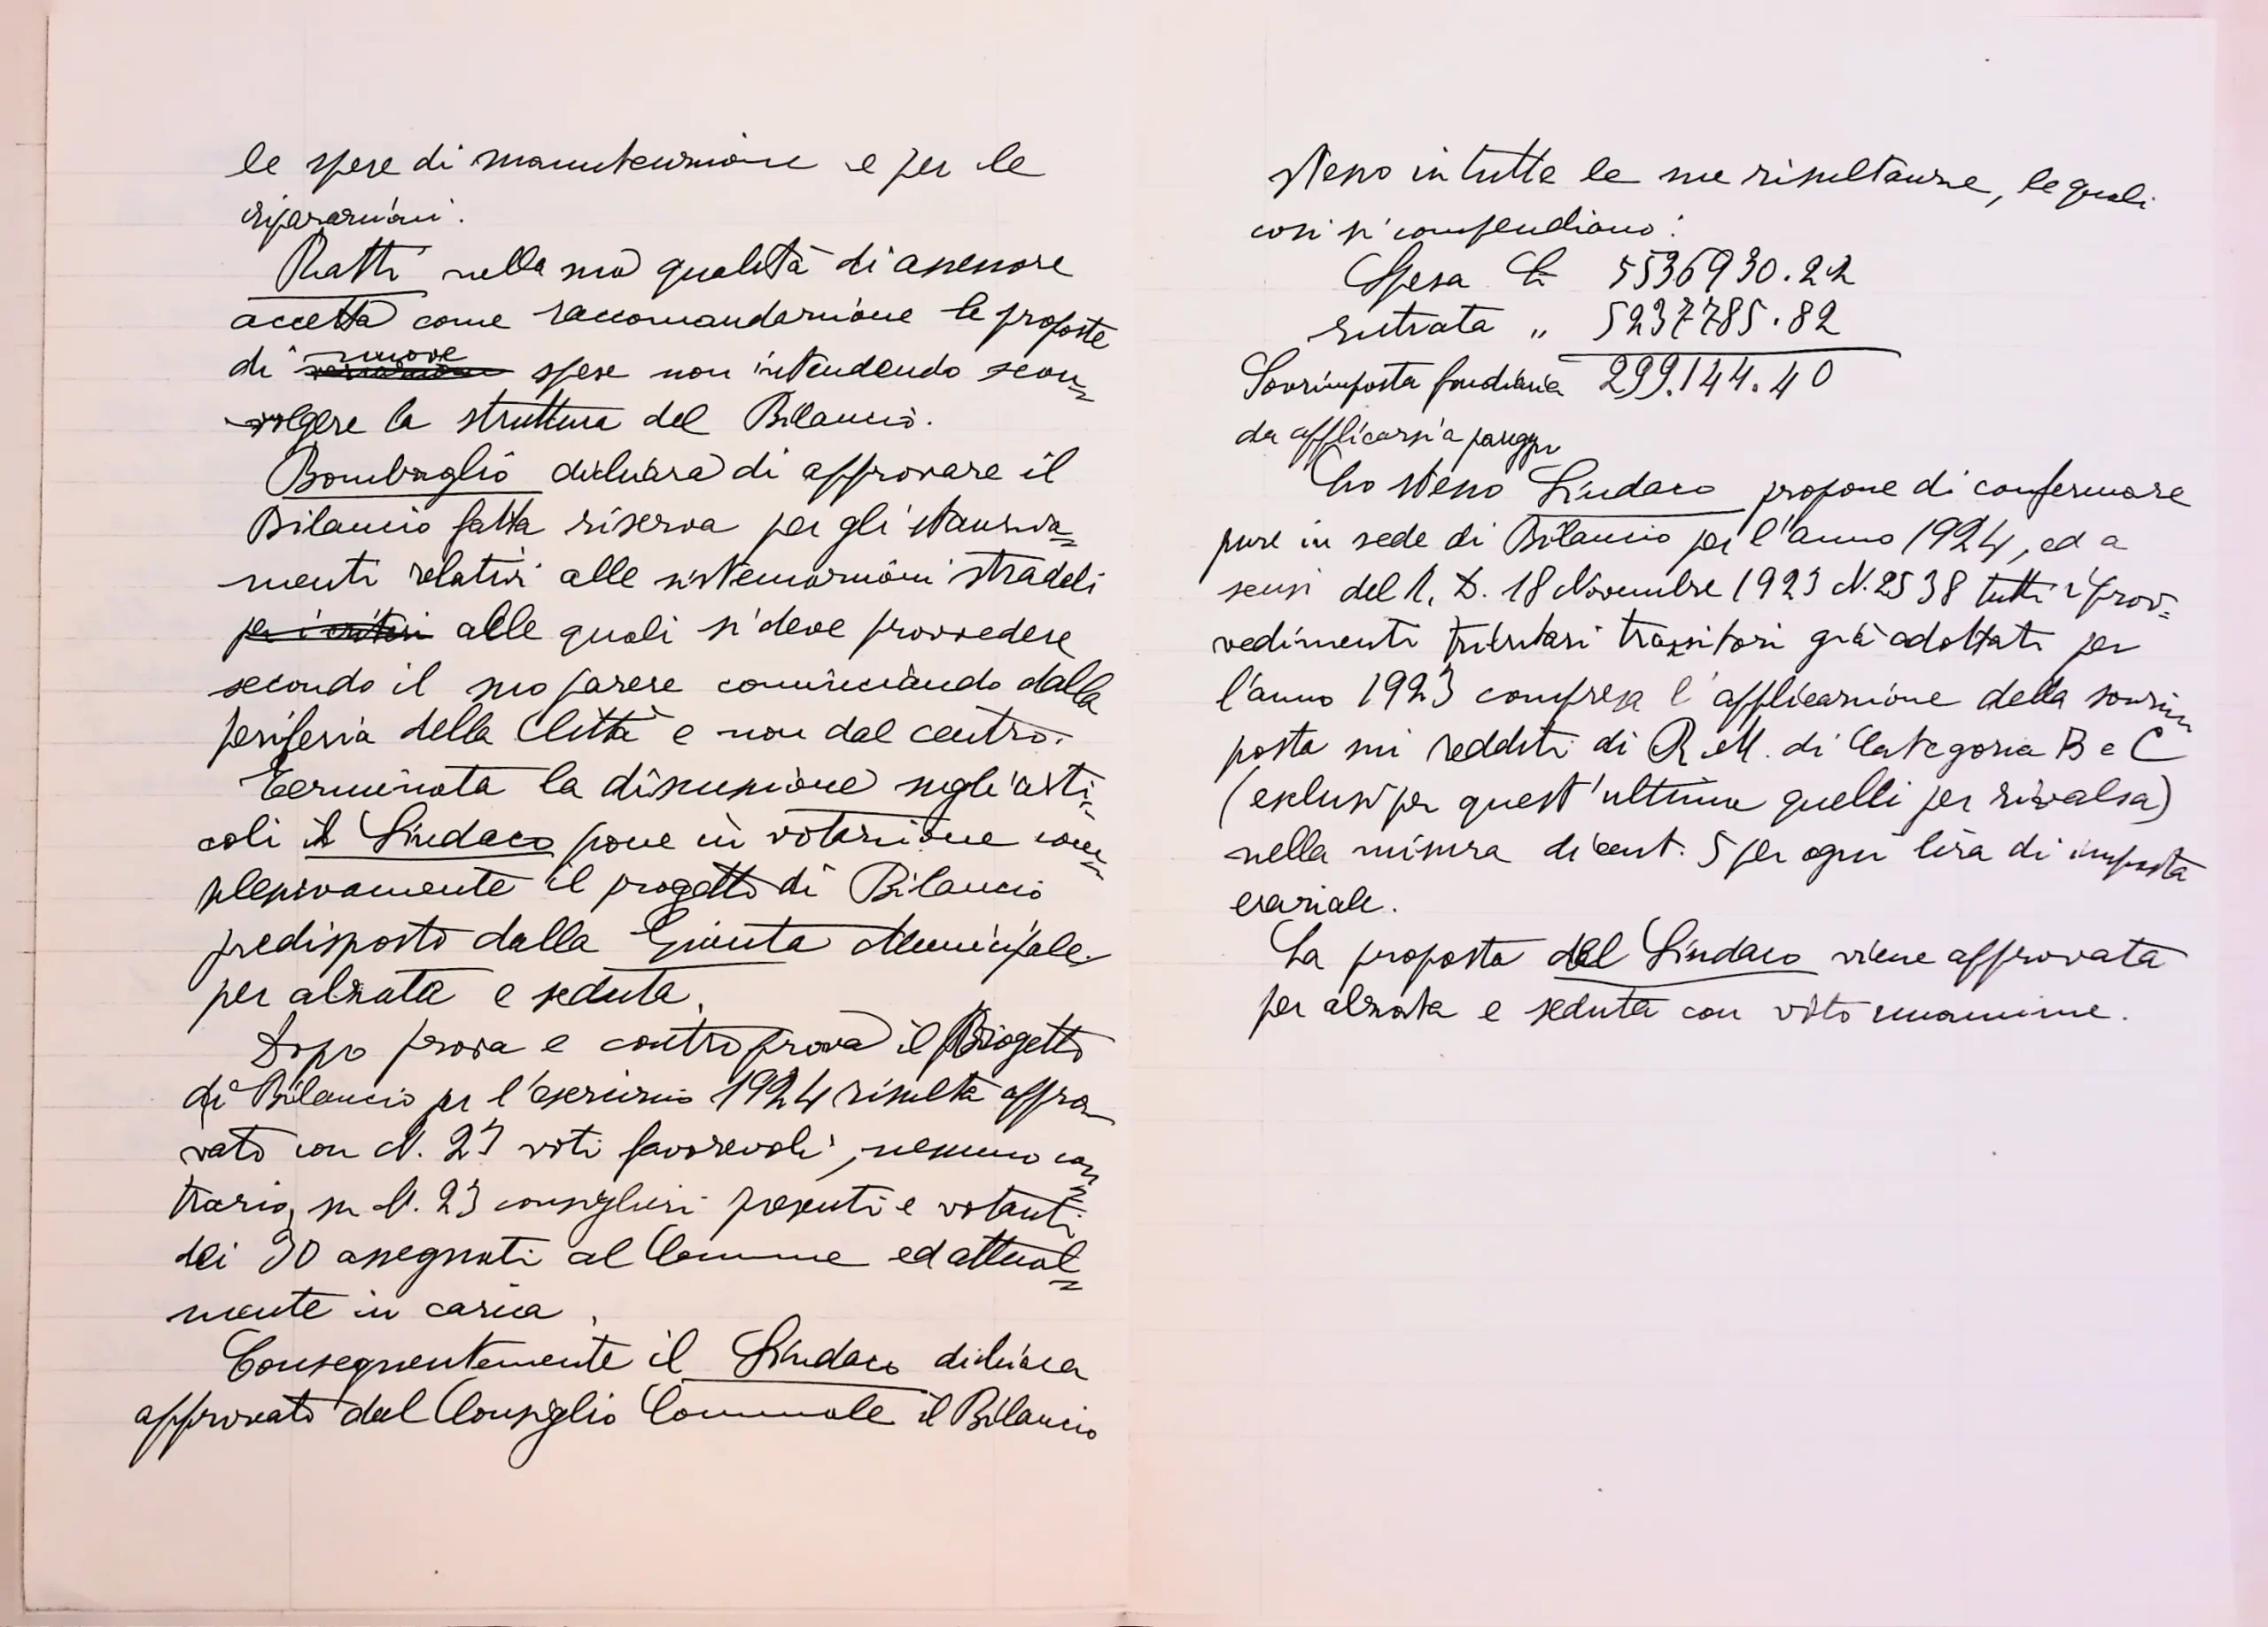 le spese di manutenzione e per le
riparazioni.
Ratti nella sua qualità di assessore
accetta come raccomandazione le proposte
di nuove spese non intendendo scon=
volgere la struttura del Bilancio.
Bombaglio dichiara di approvare il
Bilancio fatta riserva per gli stanzia=
menti relativi alle sistemazioni stradali
per i criteri alle quali si deve provvedere
secondo il suo parere cominciando dalla
periferia della Città e non dal centro.
Terminata la discussione sugli arti=
coli il Sindaco pone in votazione com=
plessivamente il progetto di Bilancio
predisposto dalla Giunta Municipale
per alzata e seduta.
Dopo prova e controprova il Progetto
di Bilancio per l'esercizio 1924 risulta appro=
vato con N. 23 voti favorevoli, nessuno con=
trario, su N. 23 consiglieri presenti e votanti
dei 30 assegnati al Comune ed attual=
mente in carica.
Conseguentemente il Sindaco dichiara
approvato dal Consiglio Comunale il Bilancio
stesso in tutte le sue risultanze, le quali
così si compendiano:
Spesa L. 5536930.22
entrata " 5237785.82
Sovrimposta fondiaria 299.144.40
da applicarsi a pareggio
Lo stesso Sindaco propone di confermare
pure in sede di Bilancio per l'anno 1924, ed a
sensi del R. D. 18 Novembre 1923 N. 2538 tutti i prov=
vedimenti tributari transitori già adottati per
l'anno 1923 compresa l'applicazione della sovrim
posta sui redditi di R.M. di Categoria B e C
(esclusi per quest'ultima quelli per rivalsa)
nella misura di cent. 5 per ogni lira di imposta
erariale.
La proposta del Sindaco viene approvata
per alzata e seduta con voto unanime.